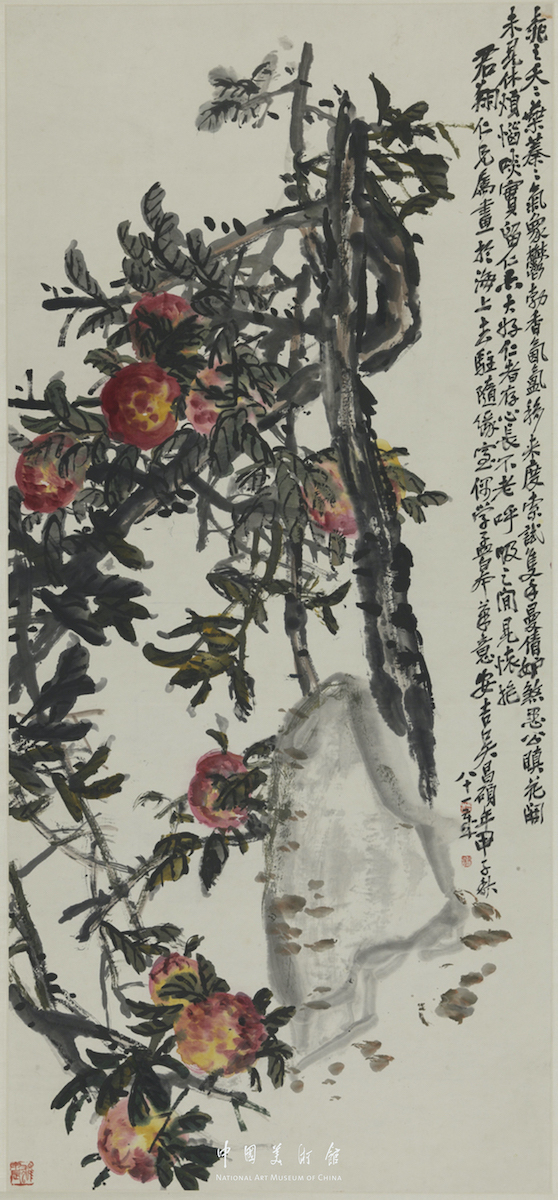 桃之夭〻葉蓁〻氣象鬱勃香氤氳移來度索試隻手曼倩恐公瞋花開
未見休煩惱啖實留仁亦大好仁者存心長不老呼吸之間見懷抱
君翔仁兄屬畫於海上去駐隨緣室偶學孟皋意安吉吳昌碩年甲子秋
八十一
中国美术馆
NATIONAL ART MUSEUM OF CHINA